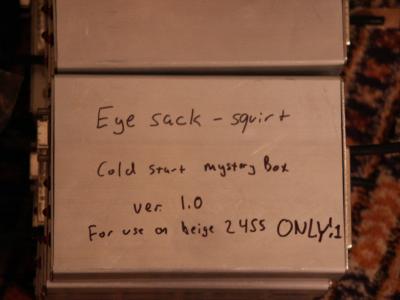 Eye sack - squirt
Cold start mystery Box
ver. 1.0
For use on beige 2455 ONLY!1